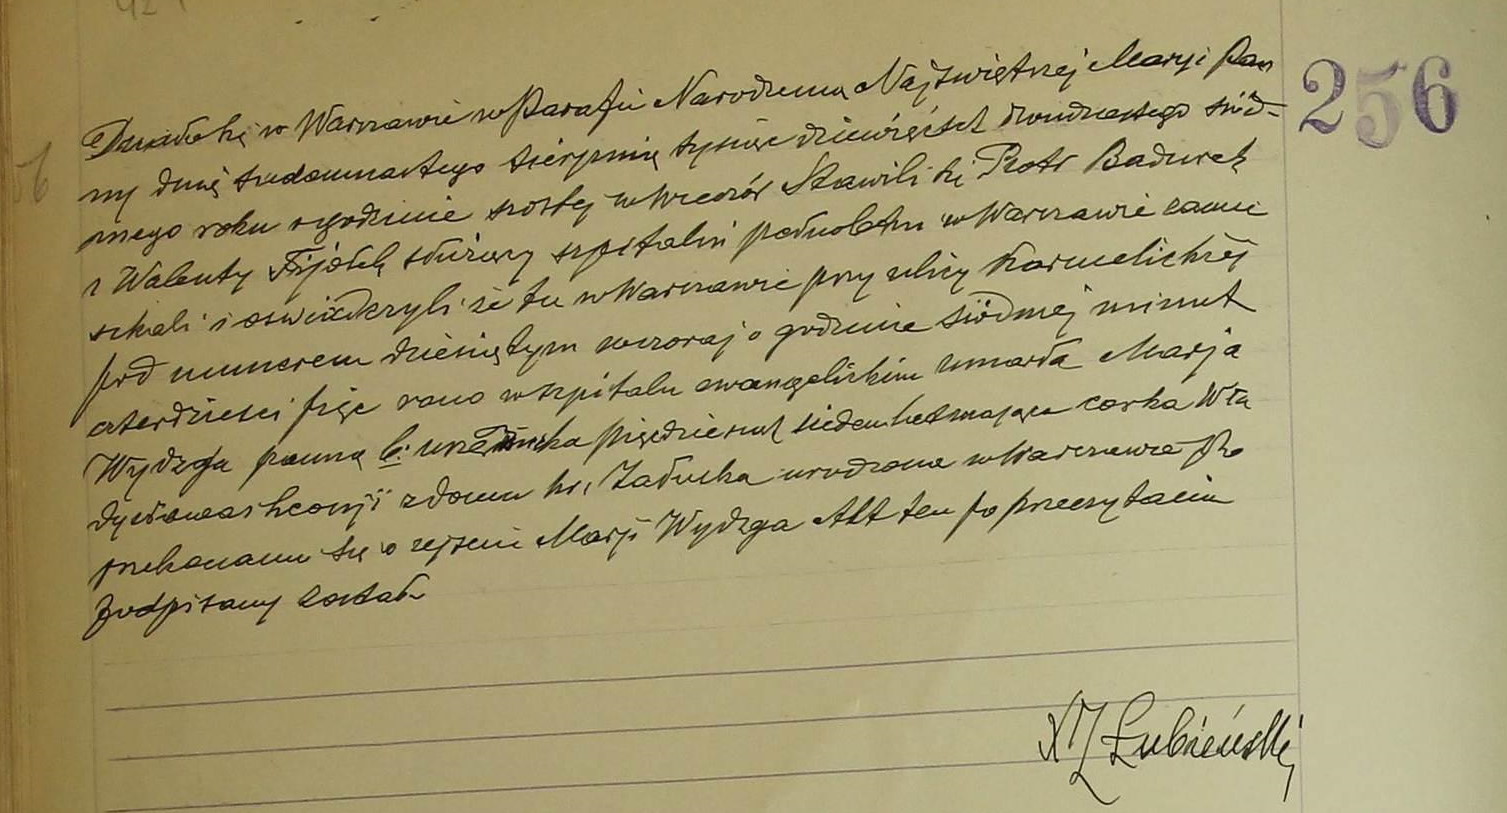 Działo się w Warszawie w Parafii Narodzenia Najświętszej Maryi Pan
ny dnia siedemnastego sierpnia tysiąc dziewięćset dwudziestego siód-
mego roku o godzinie szóstej wieczór Stawili się Piotr Badurek
i Walenty Fijołek służący szpitalni pełnoletni w Warszawie zamie
szkali i oświadczyli że tu w Warszawie przy ulicy Karmelickiej
pod numerem dziesiątym wczoraj o godzinie siódmej minut
czterdzieści pięć rano w szpitalu ewangelickim umarła Marja
Wydzga panna b. urzędniczka pięćdziesiąt siedem lat mająca córka Wła
dysława i Leonji z domu hr. Załuska urodzona w Warszawie Po
przekonaniu się o zejściu Marji Wydzga Akt ten po przeczytaniu
podpisany został
X Z Łubieński
256